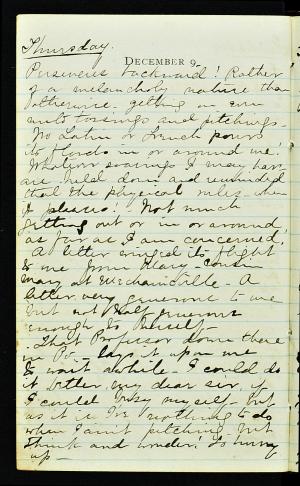 Thursday.
DECEMBER 9.
backward! Rather
of a melancholy nature than
otherwise. getting on
tossings and pitchings.
No Latin or French pours
its floods in or around me.
Whatever soarings I may have
are held down and reminded
that the physical rules when
it pleases. Not much
getting out or in or around,
as far as I am concerned.
A letter winged its flight
to me from Mary - cousin
Mary at Mechanicville - A
letter very generous to me
but not half generous
enough to herself
- That Professor down there
in - lays it upon me
to wait awhile - I could do
it better, my dear sir, if
I could busy myself - but
as it is I've nothing to do
when I ain't pitching but
think and wonder! So hurry
up -